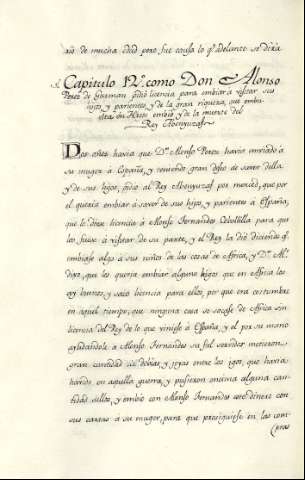 aio de mucha edad pero fue causa lo q adelante se dira
Capitulo 12º como Don Alonso
Perez de Guzman pidio licencia para embiar à visitar sus
hijos y parientes, y de la gran riqueza, que embio
y de la muerte del
Rey Abenyuzaf
Dos años havia que Dn Alonso Perez havia enviado à
su muger à España, y teniendo gran deseo de saver della
y de sus hijos, pidio al Rey Abenyuzaf por merced, que por
el queria embiar à saver de sus hijos, y parientes à España,
que le diese licencia à Alonso Fernandez Cebolilla para que
los fuese à visitar de su parte, y el Rey la dio diciendo q
embiase algo à sus niños de las cosas de Africa, y Dn Alº
dijo, que les queria embiar algunos higos que en Africa los
ay buenos, y saco licencia para ellos, por que era costumbre
en aquel tiempo, que ninguna cosa se sacase de Africa sin
licencia del Rey de lo que viniese à España, y el por su mano
ayudandole à Alonso Fernandez su fiel servidor metieron,
gran cantidad de doblas, y joyas entre los igos, que havia
havido en aquella guerra, y pusieron encima alguna can-
tidad dellos, y embio con Alonso Fernandez este dinero con
sus cartas à su muger, para que prosiguiese en las com-
pras